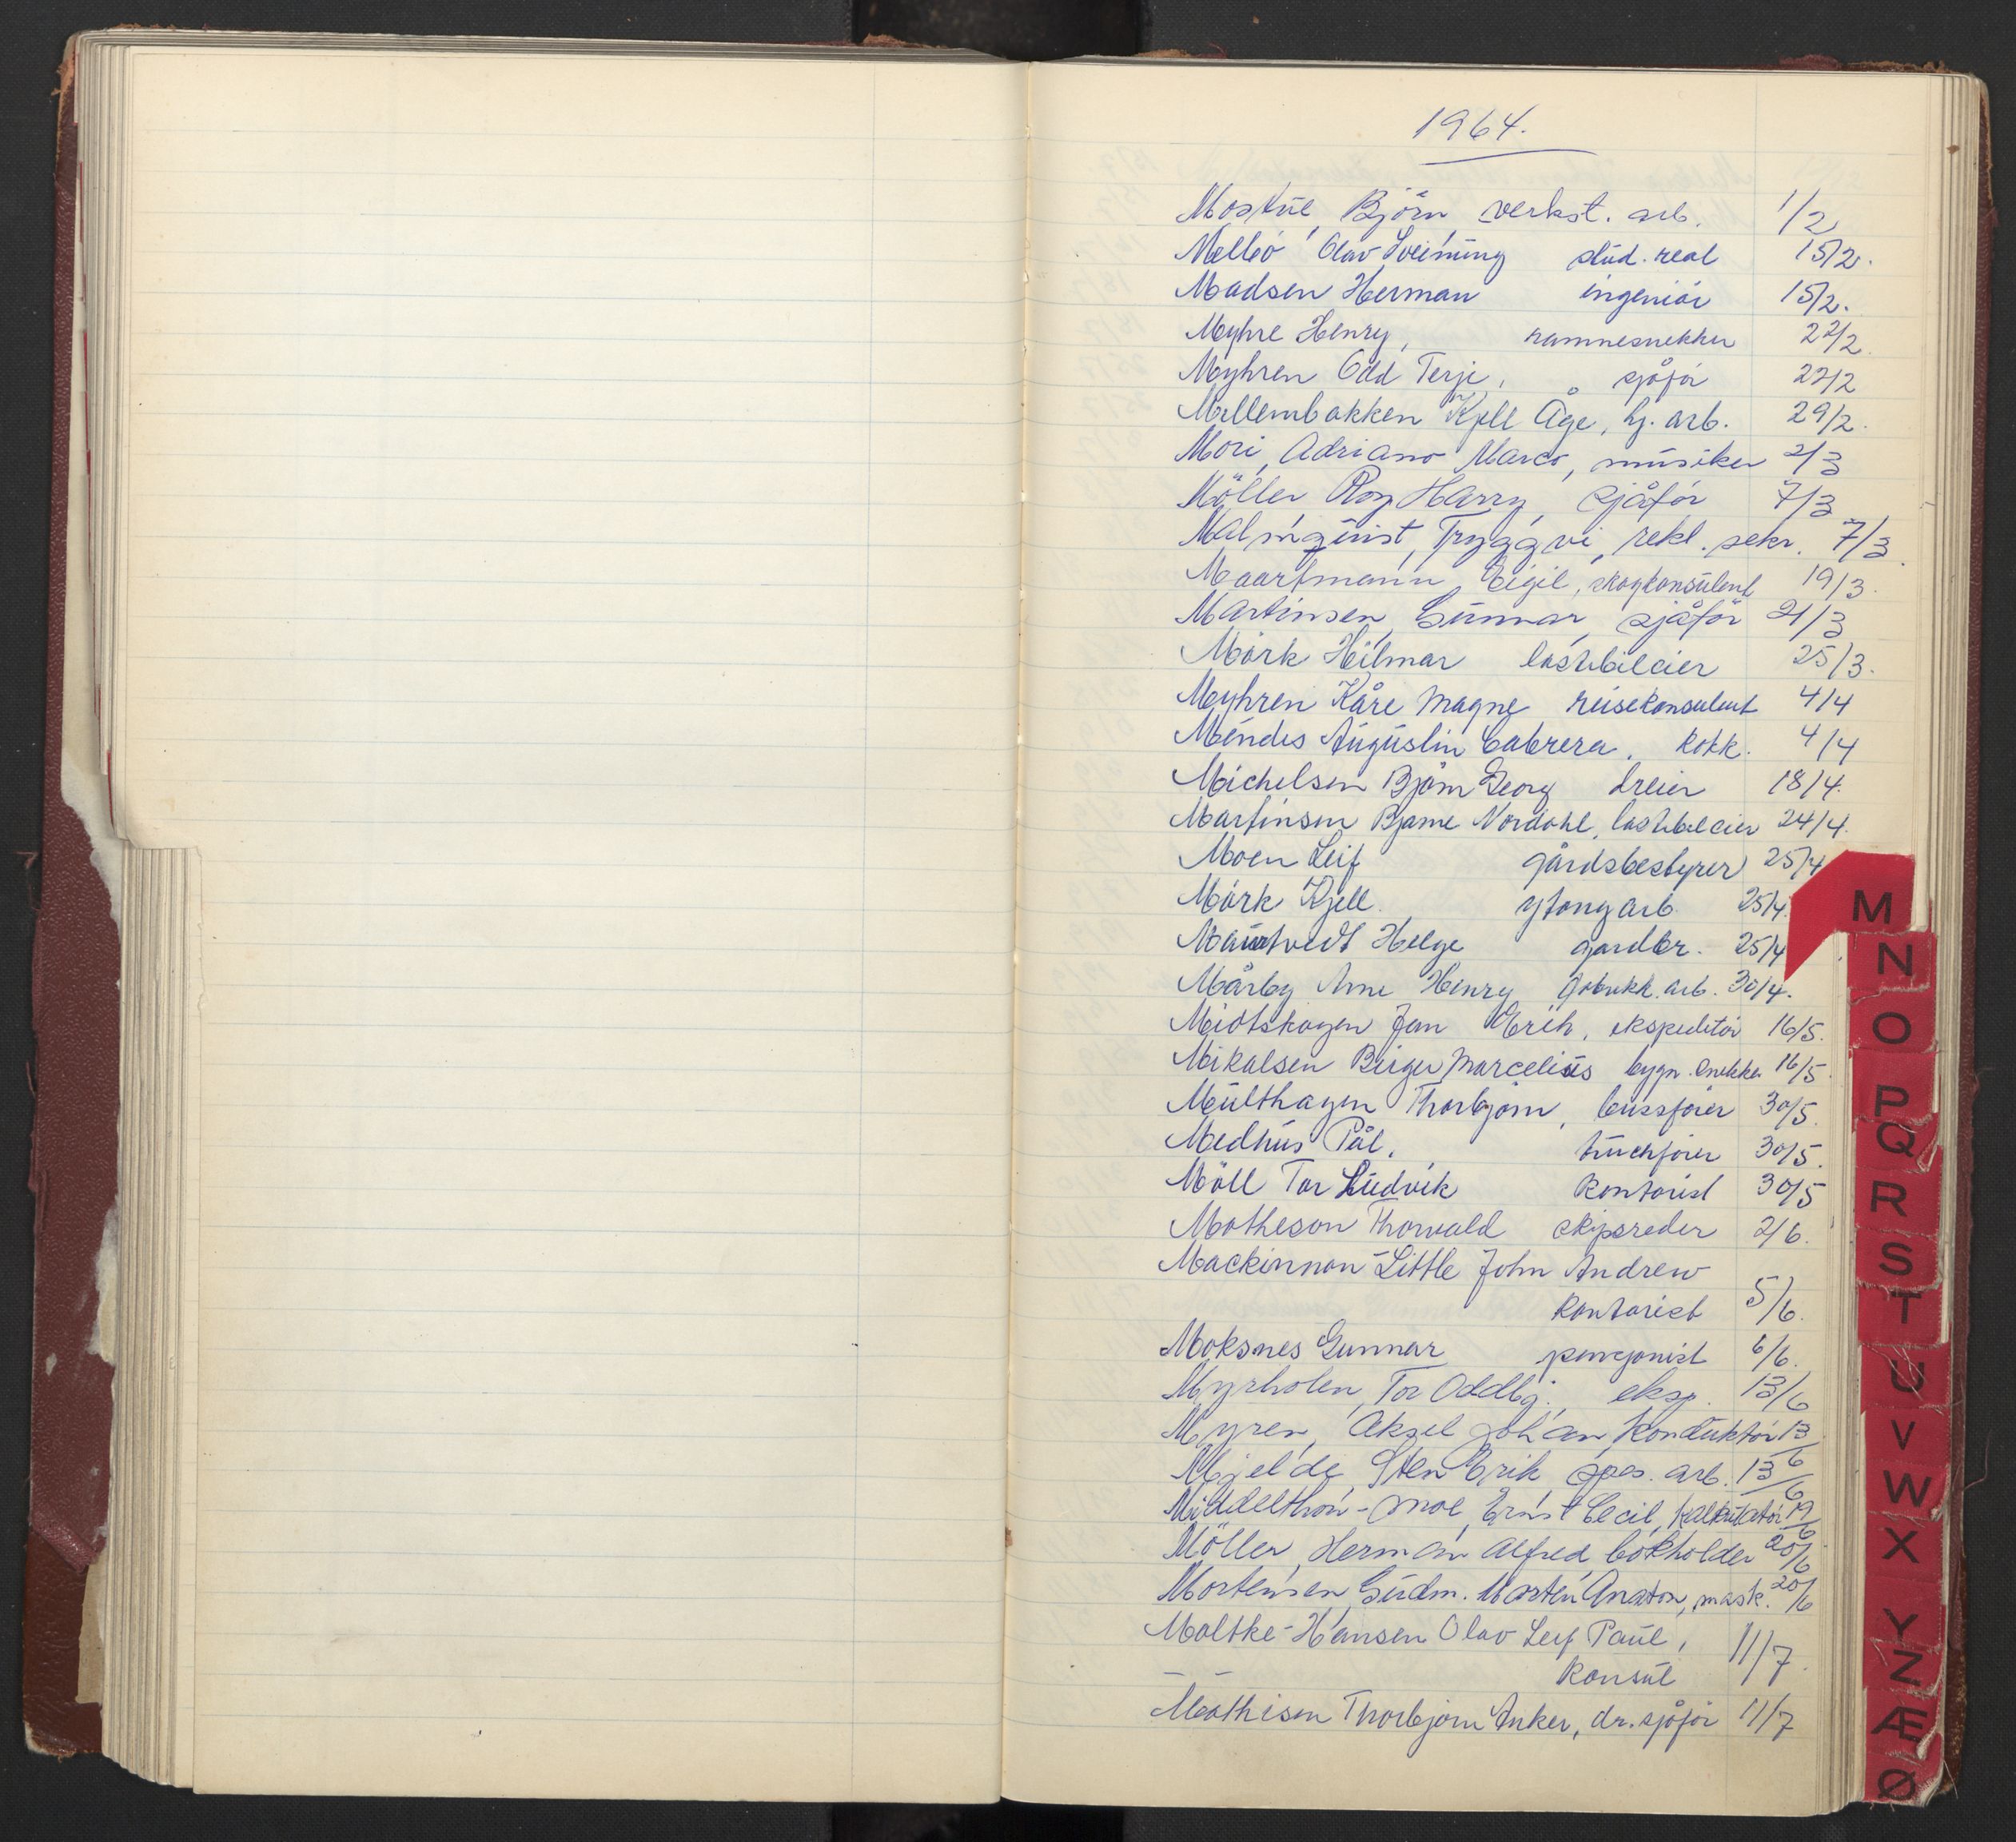 1964.
Moskue, Björn, verkst. arb. 1/2
Mellbö Olav Sveinung stud. real 15/2.
Madsen Herman ingeniör 15/2.
Myhre Henry, rammesnekker 22/2
Myhren Odd Terje, sjåför 22/2
Mellembakken Kjell Åge, hj. arb. 29/2.
Mori, Adriano Marco, musiker 2/3
Möller, Roy Harry, sjåför 7/3
Malmquist, Tryggvi, rekl. sekr. 7/3
Maartmann, Eigil, skogkonsulent 19/3.
Martinsen, Gunnar, sjåför 21/3
Mörk Hilmar lastebileier 25/3.
Myhren Kåre Magne reisekonsulent 4/4
Méndes Augustin Cabrera, kokk. 4/4
Michelsen Björn Georg dreier 18/4.
Martinsen Bjarne Nordahl, lastebileier 24/4.
Moen Leif gårdsbestyrer 25/4
Mörk Kjell. ytong arb. 25/4.
Helge gardbr. 25/4
Mårby Arne Henry fabrikk. arb. 30/4.
Midtskogen Jan Erik, ekspeditör 16/5.
Mikalsen Birger Marcelius bygn. snekker 16/5
Multhagen Thorbjörn, bussförer 30/5.
Medhus Pål, truckförer 30/5.
Möll Tor Ludvik kontorist 30/5
Matheson Thorvald skipsreder 2/6.
Mackinnon-Little John Andrew
kontorist 5/6.
Moksnes Gunnar pensjonist 6/6.
Myrholen, Tor Oddbj. eksp. 13/6
Myren, Aksel Johan, konduktör 13/6
Mjelde, Sten Erik spes. arb. 13/6
Middelthon-Moe, Ernst Cecil, kalkulatör 19/6
Möller, Herman Alfred, bokholder 20/6
Mortensen, Gudm. Morten Anaton, mask. 20/6
Moltke-Hansen Olav Leif Paul,
konsul 11/7.
Mathisen Thorbjörn Anker, dr. sjåför 11/7
M
N
O
P
Q
R
S
T
U
V
W
X
Y
Z
Æ
Ø